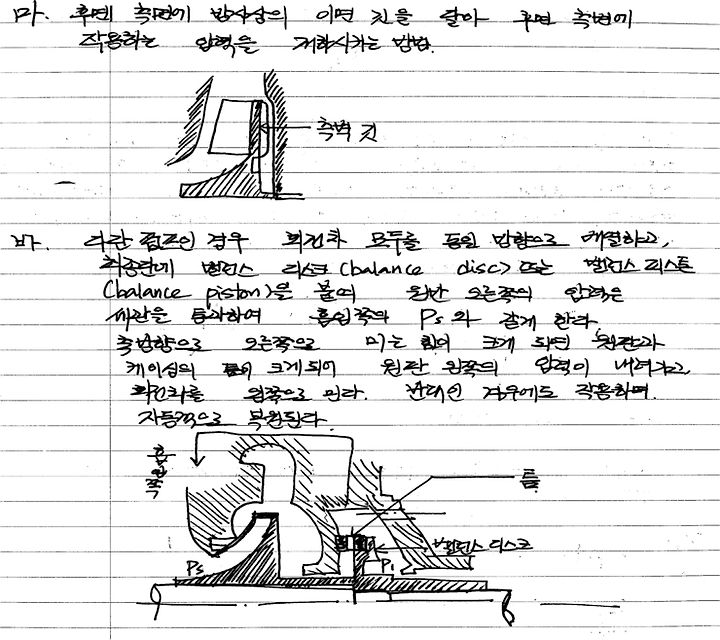 마. 후면 측벽에 방사상의 이면 깃을 달아 후면 측벽에
작용하는 압력을 저하시키는 방법.
측벽 깃
바. 다단 펌프인 경우 회전차 모두를 동일 방향으로 배열하고,
최종단에 밸런스 디스크 (balance disc) 또는 밸런스 피스톤
(balance piston)을 붙여 원반 오른쪽의 압력은
세관을 통과하여 흡입쪽의 Ps와 같게 한다.
축방향으로 오른쪽으로 미는 힘이 크게 되면 원판과
케이싱의 틈이 크게되어 원판 왼쪽의 압력이 내려가고,
회전차를 왼쪽으로 민다. 반대인 경우에도 작용하며
자동적으로 복원된다.
흡입쪽
틈
밸런스 디스크
Ps
P1